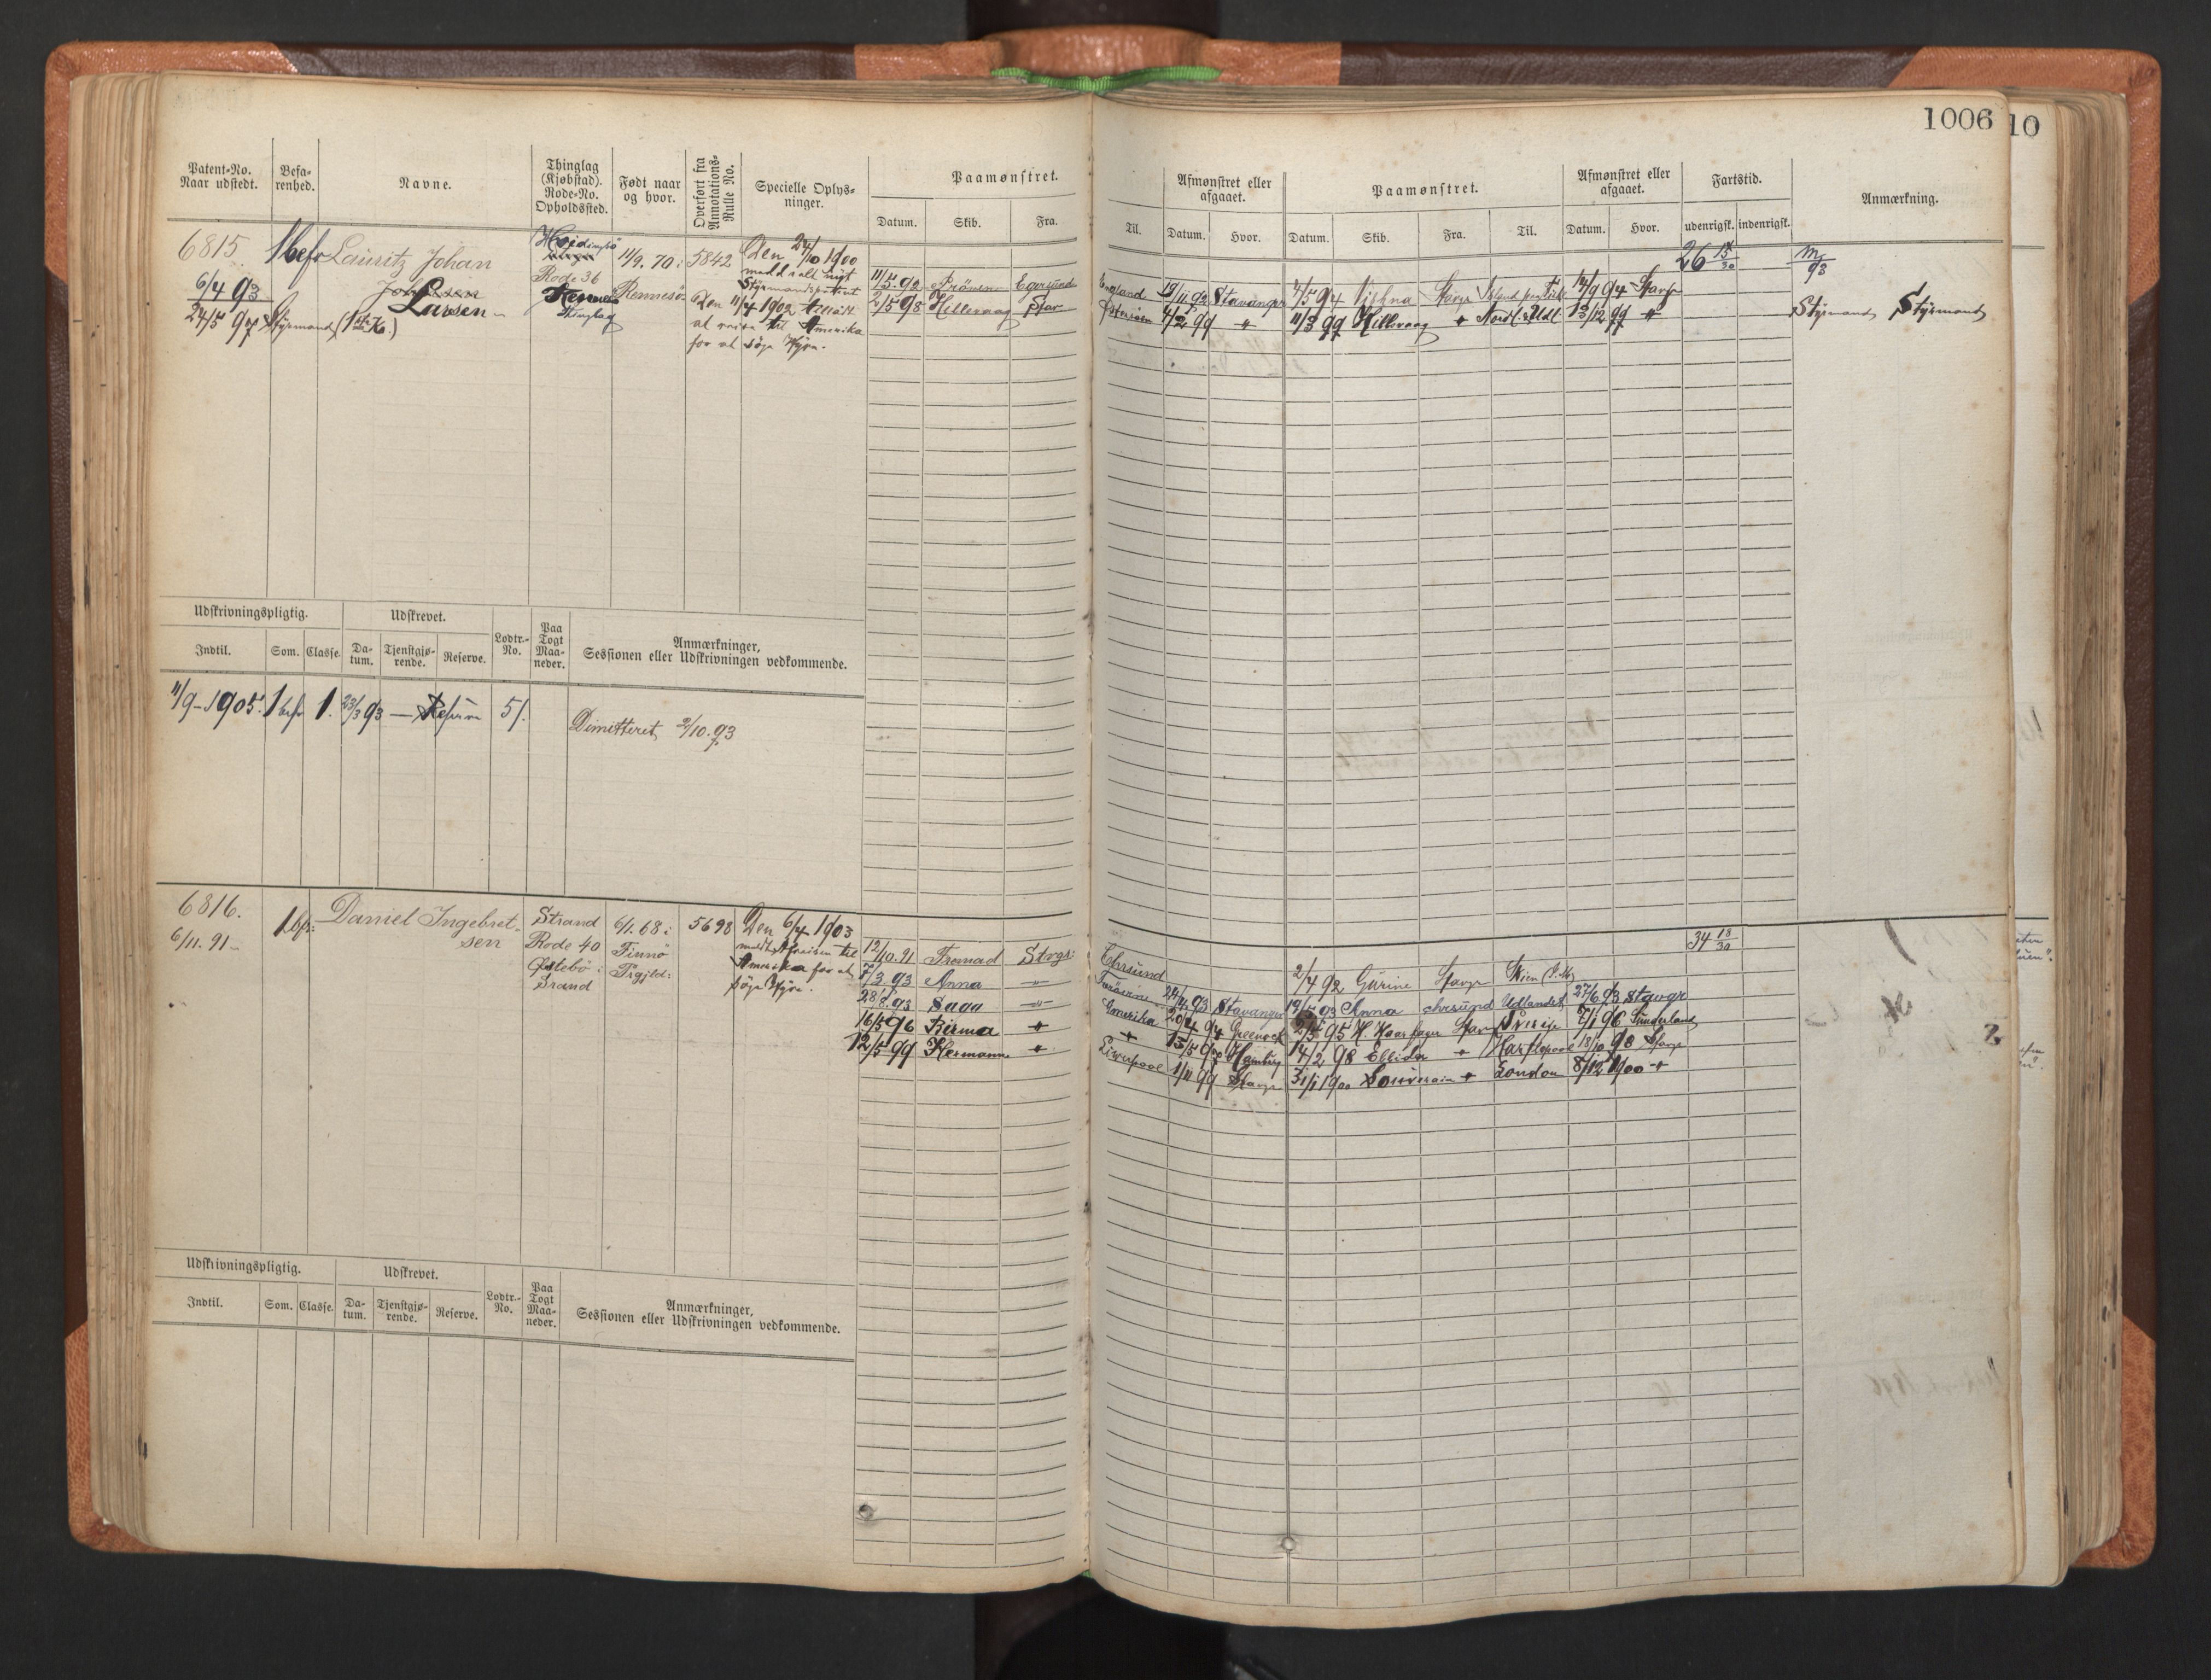 1006
10
Patent-No.
Naar udstedt.
Befa-
renhed.
Navne.
Thinglag
(Kjøbstad).
Rode-No.
Opholdssted.
Født naar
og hvor.
Overført fra
Annotations-
Rulle No.
Specielle Oplys-
ninger.
Paamønstret.
Datum. Skib. Fra.
Til.
Afmønstret eller
afgaaet.
Datum. Hvor.
Paamønstret.
Datum. Skib. Fra. Til.
Afmønstret eller
afgaaet.
Datum. Hvor.
Fartstid.
udenrigsk. indenrigsk.
Anmærkning.
6815.
6/4 93
24/5 97 Styrmand (1ste K.)
1 befr
Lauritz Johan
Larsen
Rode 36
Thinglag
11/9. 70 i
Rennesö
5842
Den 24/10 1900
Styrmandspatent
Den 11/4 1902 tilladt
at reise til Amerika
for at söge Hyre.
11/5 92 Egersund
2/5 98 Hillevaag Stav
England 19/11 92 Stavanger
4/2 99 "
7/5 94 Stavgr
11/3 99 Hillevaag
14/9 94 Stavgr
13/12 99 "
26 15/30
Styrmand Styrmand
Udskrivningspligtig.
Indtil. Som. Classe.
Udskrevet.
Da-
tum.
Tjenstgjø-
rende.
Reserve.
Lodtr.-
No.
Paa
Togt
Maa-
neder.
Anmærkninger,
Sessionen eller Udskrivningen vedkommende.
11/9-1905. 1 befr 1. 23/3 93 — Reserve 51.
Dimitteret 2/10. 93
6816.
6/11. 91
1 bfr:
Daniel Ingebret-
sen
Strand
Rode 40
Østebö i
Strand
6/1. 68 i
Finnö
5698
Den 6/4 1903
meldt Afreisen til
Amerika for at
söge Hyre.
12/10. 91 Fremad Stvgr:
7/3 93 Anna "
28/8. 93 Saga "
16/5 96 Kirma "
12/5 99 Hermann "
Amerika
Liverpool
24/4 93 Stavanger
20/4 94 Greenock
13/5 97 Hamburg
1/11 99 Stavgr
2/4 92 Gurine Stavgr
Anna Udlandet
2/5 95 H. Haarfager Stavgr Sverige
14/2 98 Ellida " Hartlepool
31/1 1900 Souverain " London
27/6 93 Stavgr
7/1 96 Sunderland
18/10 98 Stavgr
8/12 1900 "
34 18/30
Udskrivningspligtig.
Indtil. Som. Classe.
Udskrevet.
Da-
tum.
Tjenstgjø-
rende.
Reserve.
Lodtr.-
No.
Paa
Togt
Maa-
neder.
Anmærkninger,
Sessionen eller Udskrivningen vedkommende.